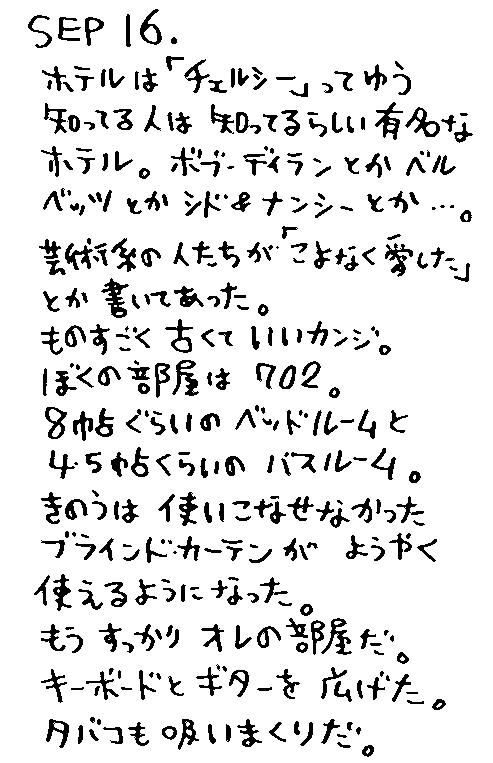 SEP 16.
ホテルは「チェルシー」ってゆう
知ってる人は知ってるらしい有名な
ホテル。ボブ・ディランとかベル
ベッツとかシド&ナンシーとか…。
芸術系の人たちが「こよなく愛した」
とか書いてあった。
ものすごく古くていいカンジ。
ぼくの部屋は702。
8帖ぐらいのベッドルームと
4.5帖くらいのバスルーム。
きのうは使いこなせなかった
ブラインド・カーテンがようやく
使えるようになった。
もうすっかりオレの部屋だ。
キーボードとギターを広げた。
タバコも吸いまくりだ。